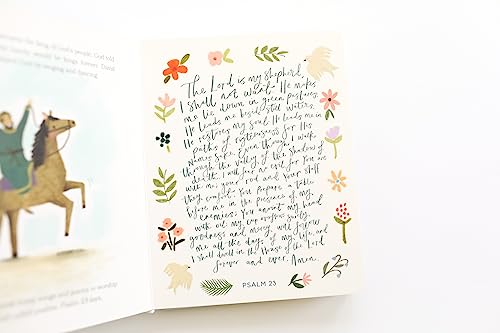 the King of God's people. God told
would be kings forever. David
by singing and dancing.
songs and poetry to worship
called psalms. Psalm 23 says,
The Lord is my shepherd,
I shall not want. He makes
me lie down in green pastures,
He leads me beside still waters.
He restores my soul. He leads me in
paths of righteousness for His
names sake. Even though I walk
through the valley of the shadow of
death, I will fear no evil, for You are
with me; your rod and Your staff
they comfort. You prepare a table
before me in the presence of my
enemies. You anoint my head
with oil, my cup overflows. Surely
goodness and mercy will follow
me all the days of my life, and
I shall dwell in the House of the Lord
forever and ever, Amen.
PSALM 23